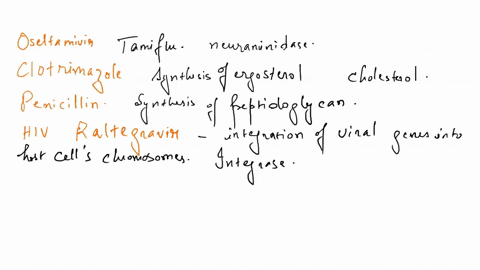 Oseltamivir Tamiflu. neuraminidase.
Clotrimazole Synthesis of ergosterol cholesterol.
Penicillin. Synthesis of peptidoglycan.
HIV Raltegravir - integration of viral genes into
host cell's chromosomes. Integrase.